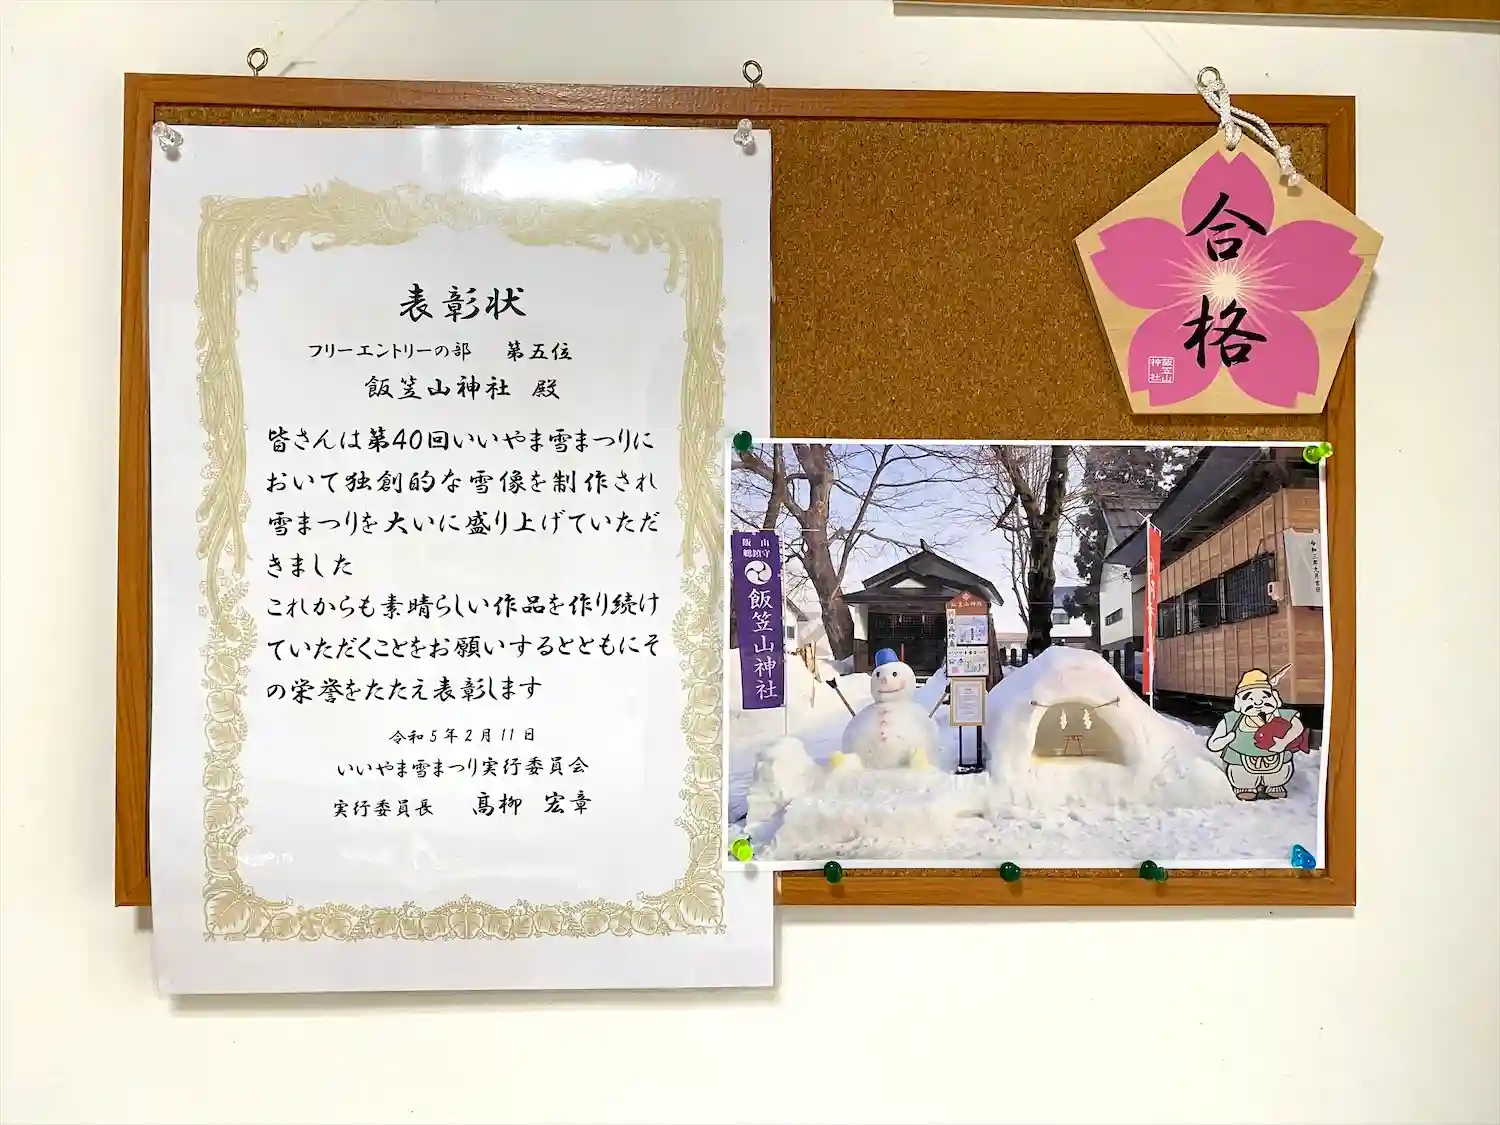 表彰状
フリーエントリーの部 第五位
飯笠山神社 殿
皆さんは第40回いいやま雪まつりに
おいて独創的な雪像を制作され
雪まつりを大いに盛り上げていただ
きました
これからも素晴らしい作品を作り続け
ていただくことをお願いするとともにそ
の栄誉をたたえ表彰します
令和5年2月11日
いいやま雪まつり実行委員会
実行委員長 髙栁 宏章
合格
飯笠山
神社
飯山
総鎮守
飯笠山神社
飯笠山神社